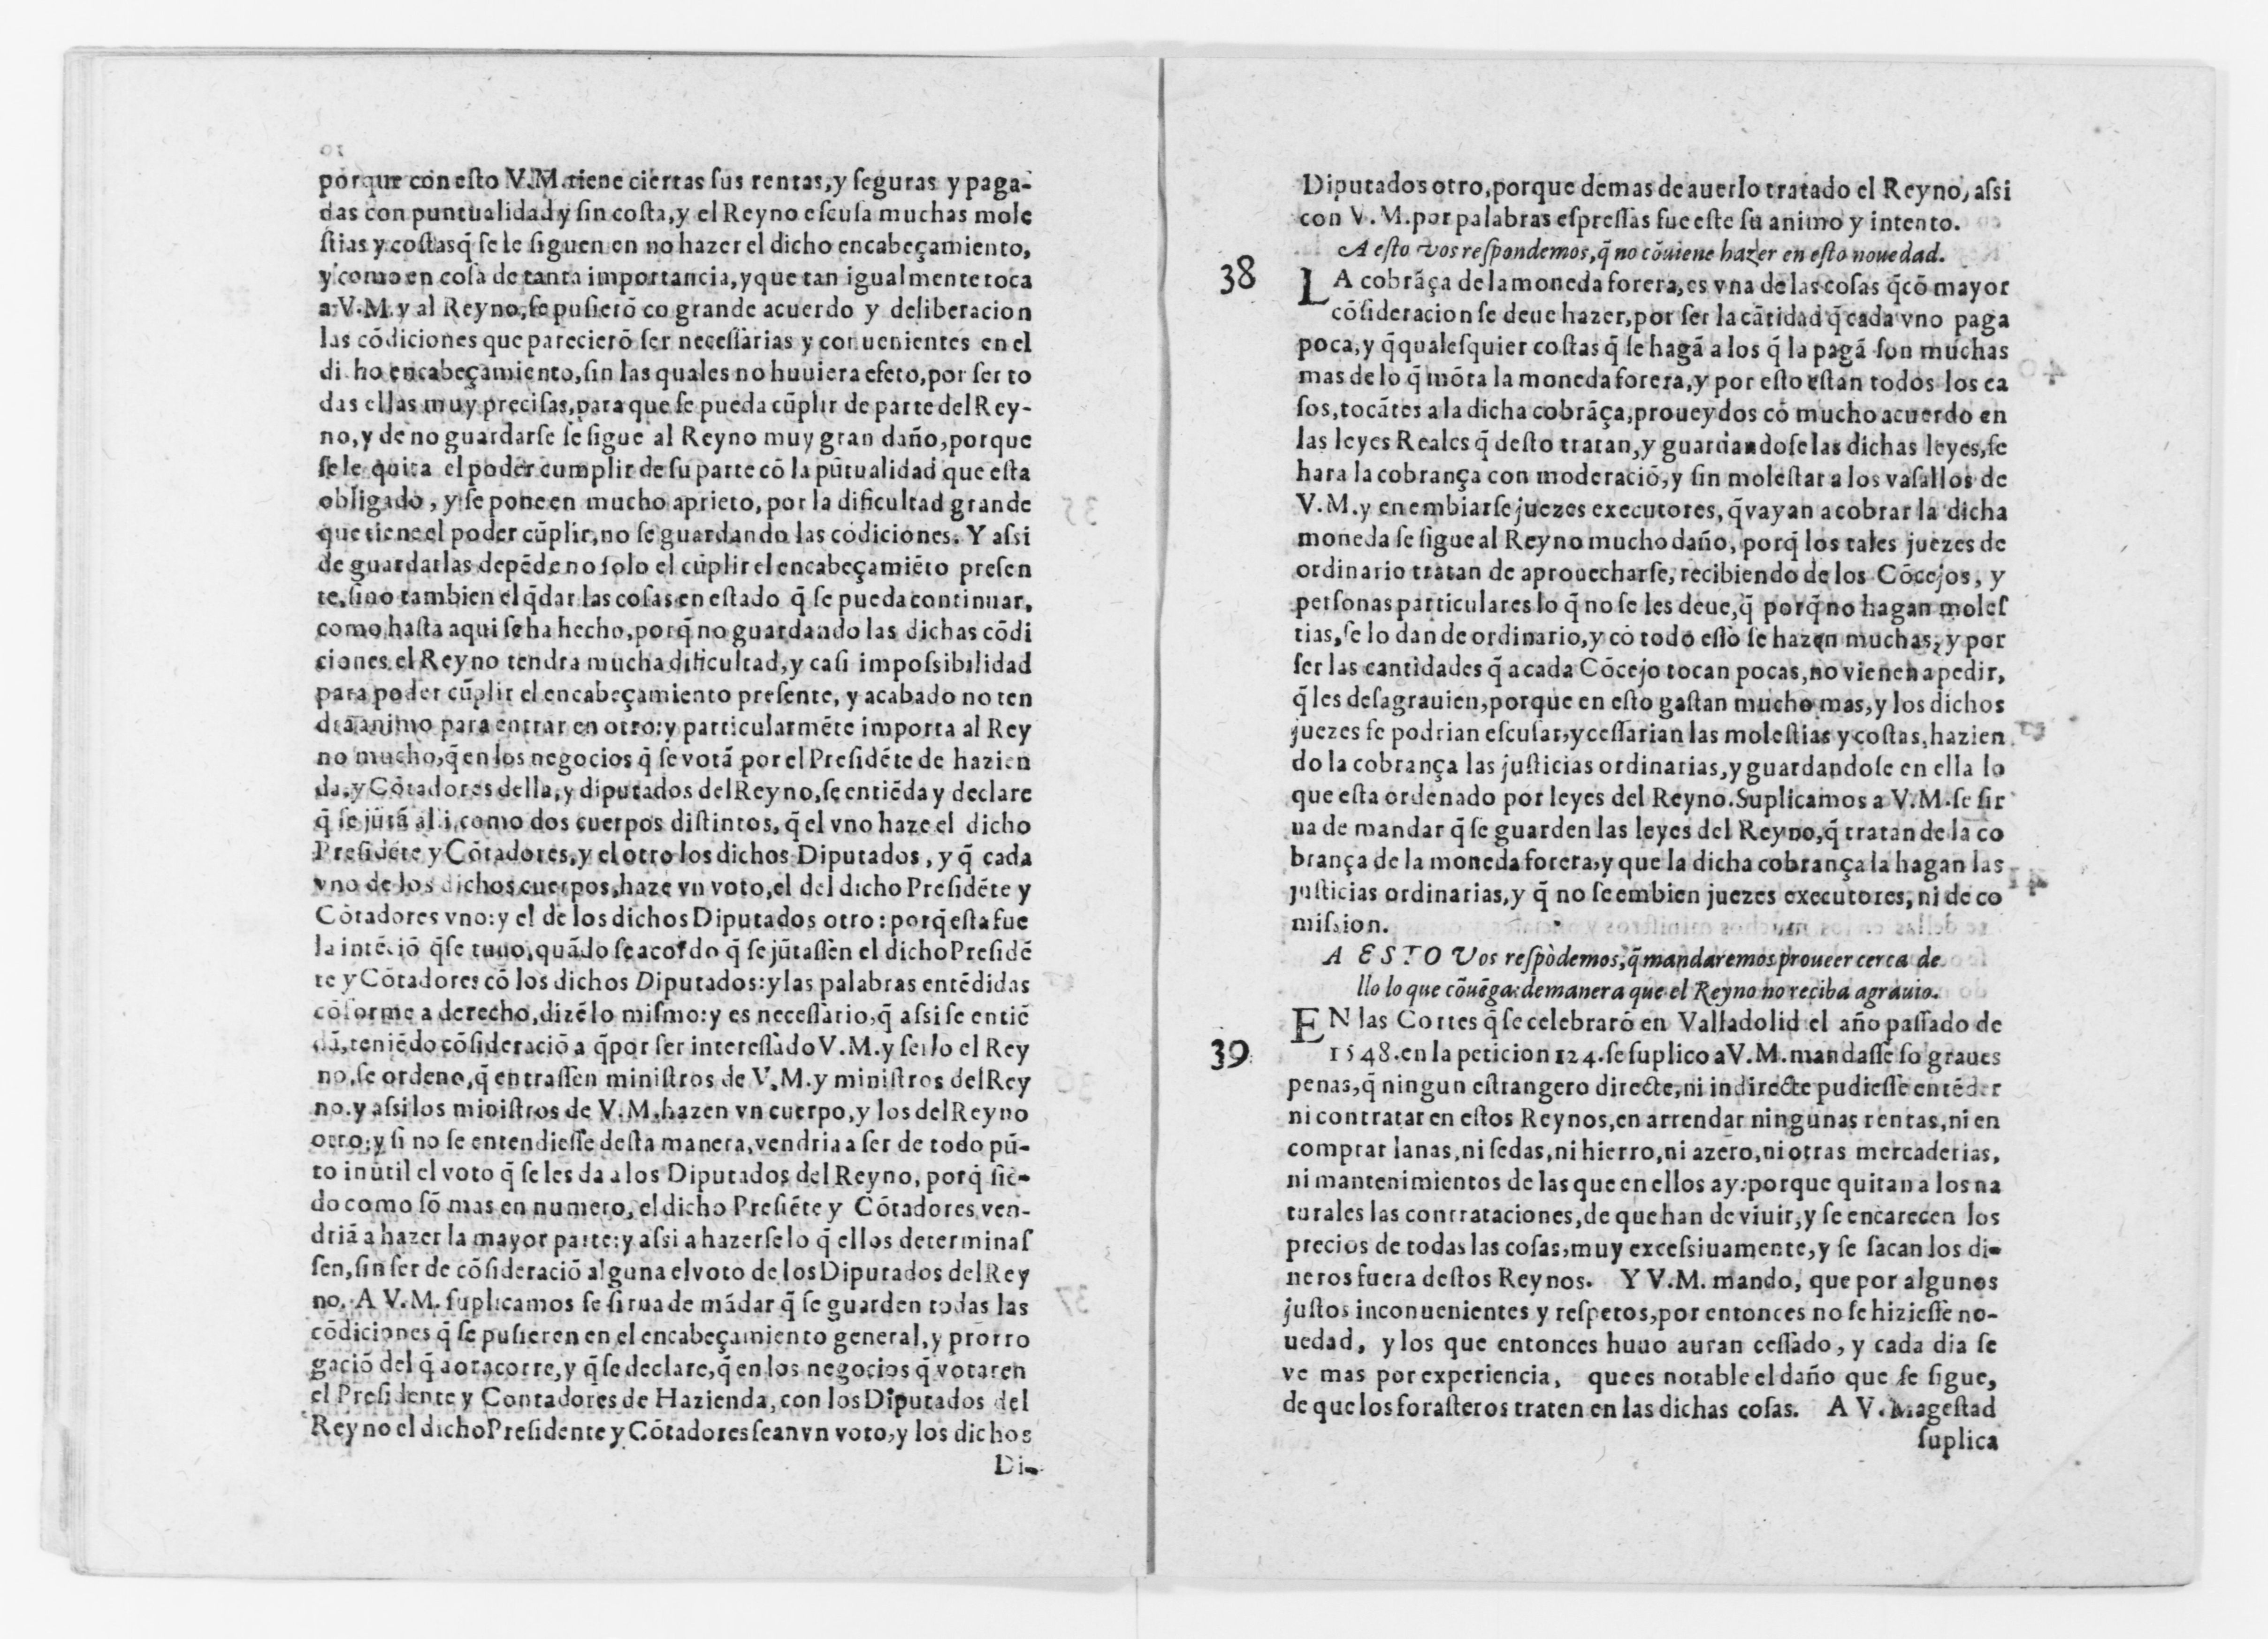 porque con esto V.M.tiene ciertas sus rentas,y seguras y paga-
das con puntualidad y sin costa,y el Reyno escusa muchas mole
stias y costas q̃ se le siguen en no hazer el dicho encabeçamiento,
y como en cosa de tanta importancia,y que tan igualmente toca
a V.M.y al Reyno,se pusierõ co grande acuerdo y deliberacion
las cõdiciones que parecierõ ser necessarias y conuenientes en el
dicho encabeçamiento,sin las quales no huuiera efeto,por ser to
das ellas muy precisas,para que se pueda cũplir de parte del Rey-
no,y de no guardarse se sigue al Reyno muy gran daño,porque
se le quita el poder cumplir de su parte cõ la pũtualidad que esta
obligado, y se pone en mucho aprieto, por la dificultad grande
que tiene el poder cũplir,no se guardando las cõdiciones. Y assi
de guardarlas depẽde no solo el cũplir el encabeçamiẽto presen
te,sino tambien el q̃dar las cosas en estado q̃ se pueda continuar,
como hasta aqui se ha hecho,porq̃ no guardando las dichas cõdi
ciones el Reyno tendra mucha dificultad,y casi impossibilidad
para poder cũplir el encabeçamiento presente, y acabado no ten
dra animo para entrar en otro:y particularmẽte importa al Rey
no mucho,q̃ en los negocios q̃ se votã por el Presidẽte de hazien
da,y Cõtadores della,y diputados del Reyno,se entiẽda y declare
q̃ se jũtã alli,como dos cuerpos distintos, q̃ el vno haze el dicho
Presidẽte y Cõtadores,y el otro los dichos Diputados, y q̃ cada
vno de los dichos cuerpos,haze vn voto,el del dicho Presidẽte y
Cõtadores vno:y el de los dichos Diputados otro: porq̃ esta fue
la intẽciõ q̃ se tuuo,quãdo se acordo q̃ se jũtassen el dicho Presidẽ
te y Cõtadores cõ los dichos Diputados:y las palabras entẽdidas
cõforme a derecho,dizẽ lo mismo:y es necessario,q̃ assi se entiẽ
dã,teniẽdo cõsideraciõ a q̃ por ser interessado V.M.y serlo el Rey
no,se ordeno,q̃ entrassen ministros de V.M.y ministros del Rey
no.y assi los ministros de V.M.hazen vn cuerpo,y los del Reyno
otro:y si no se entendiesse desta manera,vendria a ser de todo pũ-
to inutil el voto q̃ se les da a los Diputados del Reyno, porq̃ siẽ-
do como sõ mas en numero, el dicho Presiẽte y Cõtadores ven-
driã a hazer la mayor parte:y assi a hazerse lo q̃ ellos determinas
sen,sin ser de cõsideraciõ alguna el voto de los Diputados del Rey
no. A V.M. suplicamos se sirua de mãdar q̃ se guarden todas las
cõdiciones q̃ se pusieren en el encabeçamiento general,y prorro
gaciõ del q̃ aora corre,y q̃ se declare,q̃ en los negocios q̃ votaren
el Presidente y Contadores de Hazienda, con los Diputados del
Reyno el dicho Presidente y Cõtadores sean vn voto,y los dichos
Di-
Diputados otro,porque demas de auerlo tratado el Reyno, assi
con V.M.por palabras espressas fue este su animo y intento.
A esto vos respondemos,q̃ no cõuiene hazer en esto nouedad.
38 LA cobrãça de la moneda forera,es vna de las cosas q̃ cõ mayor
cõsideracion se deue hazer,por ser la cãtidad q̃ cada vno paga
poca,y q̃ qualesquier costas q̃ se hagã a los q̃ la pagã son muchas
mas de lo q̃ mõta la moneda forera,y por esto estan todos los ca
sos,tocãtes a la dicha cobrãça,proueydos cõ mucho acuerdo en
las leyes Reales q̃ desto tratan,y guardandose las dichas leyes,se
hara la cobrança con moderaciõ,y sin molestar a los vasallos de
V.M.y en embiarse juezes executores, q̃ vayan a cobrar la dicha
moneda se sigue al Reyno mucho daño, porq̃ los tales juezes de
ordinario tratan de aprouecharse, recibiendo de los Cõcejos, y
personas particulares lo q̃ no se les deue,q̃ porq̃ no hagan moles
tias,se lo dan de ordinario,y cõ todo esso se hazen muchas, y por
ser las cantidades q̃ a cada Cõcejo tocan pocas,no vienen a pedir,
q̃ les desagrauien,porque en esto gastan mucho mas,y los dichos
juezes se podrian escusar,y cessarian las molestias y costas,hazien
do la cobrança las justicias ordinarias,y guardandose en ella lo
que esta ordenado por leyes del Reyno.Suplicamos a V.M.se sir
ua de mandar q̃ se guarden las leyes del Reyno,q̃ tratan de la co
brança de la moneda forera,y que la dicha cobrança la hagan las
justicias ordinarias,y q̃ no se embien juezes executores, ni de co
mission.
A ESTO Vos respòdemos,q̃ mandaremos proueer cerca de
llo lo que cõuẽga:demanera que el Reyno no reciba agrauio.
39 EN las Cortes q̃ se celebrarõ en Valladolid el año passado de
1548.en la peticion 124.se suplico a V.M.mandasse so graues
penas,q̃ ningun estrangero directe,ni indirecte pudiesse entẽder
ni contratar en estos Reynos,en arrendar ningunas rentas,ni en
comprar lanas,ni sedas,ni hierro,ni azero,ni otras mercaderias,
ni mantenimientos de las que en ellos ay:porque quitan a los na
turales las contrataciones,de que han de viuir,y se encarecen los
precios de todas las cosas,muy excessiuamente,y se sacan los di-
neros fuera destos Reynos. Y V.M. mando, que por algunos
justos inconuenientes y respetos,por entonces no se hiziesse no-
uedad, y los que entonces huuo auran cessado, y cada dia se
ve mas por experiencia, que es notable el daño que se sigue,
de que los forasteros traten en las dichas cosas. A V.Magestad
suplica